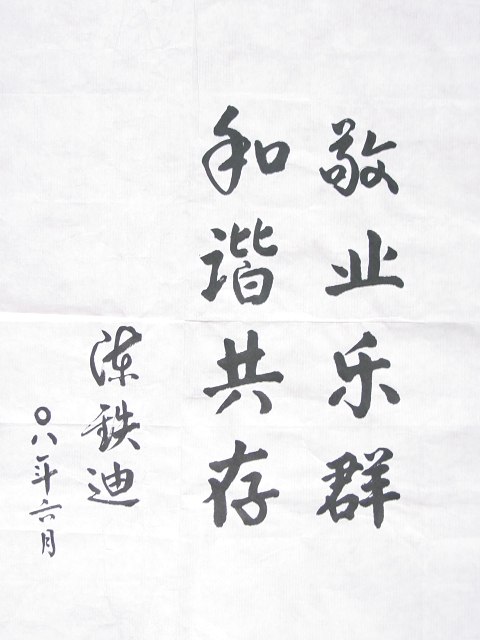 敬业乐群
和谐共存
陈铁迪
〇八年六月